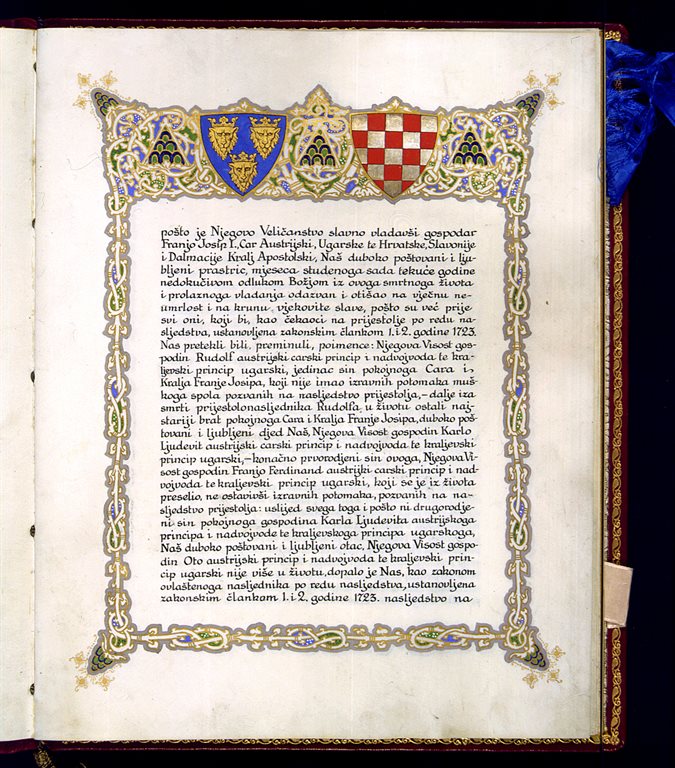 pošto je Njegovo Veličanstvo slavno vladavši gospodar
Franjo Josip I., Car Austrijski, Ugarske te Hrvatske, Slavonije
i Dalmacije Kralj Apostolski, Naš duboko poštovani i lju-
bljeni prastric, mjeseca studenoga sada tekuće godine
nedokučivom odlukom Božjom iz ovoga smrtnoga života
i prolaznoga vladanja odazvan i otišao na vječnu ne-
umrlost i na krunu vjekovite slave, pošto su već prije
svi oni, koji bi, kao čekaoci na prijestolje po redu na-
sljedstva, ustanovljena zakonskim člankom 1. i 2. godine 1723.
Nas pretekli bili, preminuli, poimence: Njegova Visost gos-
podin Rudolf austrijski carski princip i nadvojvoda te kra-
ljevski princip ugarski, jedinac sin pokojnoga Cara i
Kralja Franje Josipa, koji nije imao izravnih potomaka muš-
koga spola pozvanih na nasljedstvo prijestolja, – dalje iza
smrti prijestolonasljednika Rudolfa, u životu ostali naj-
stariji brat pokojnoga Cara i Kralja Franje Josipa, duboko poš-
tovani i ljubljeni djed Naš, Njegova Visost gospodin Karlo
Ljudevit austrijski carski princip i nadvojvoda te kraljevski
princip ugarski, – konačno prvorodjeni sin ovoga, Njegova Vi-
sost gospodin Franjo Ferdinand austrijski carski princip i nad-
vojvoda te kraljevski princip ugarski, koji se je iz života
preselio, ne ostavivši izravnih potomaka, pozvanih na na-
sljedstvo prijestolja: uslijed svega toga i pošto ni drugorodje-
ni sin pokojnoga gospodina Karla Ljudevita austrijskoga
principa i nadvojvode te kraljevskoga principa ugarskoga,
Naš duboko poštovani i ljubljeni otac, Njegova Visost gospo-
din Oto austrijski princip i nadvojvoda te kraljevski prin-
cip ugarski nije više u životu, dopalo je Nas, kao zakonom
ovlaštenoga nasljednika po redu nasljedstva, ustanovljena
zakonskim člankom 1. i 2. godine 1723. nasljedstvo na